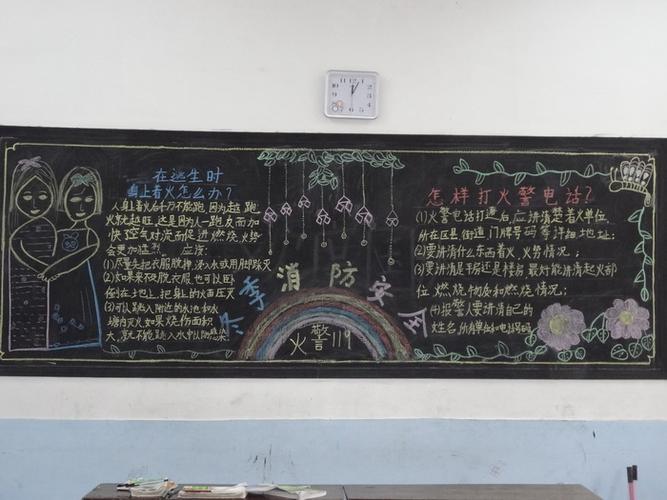 在逃生时
身上着火怎么办?
人身上着火后千万不能跑,因为越跑
火就越旺,这是因为人一跑反而加
快空气对流而促进燃烧,火势
会更加猛烈. 应该:
(1)尽量先把衣服脱掉,浸入水或用脚踩灭
(2)如果来不及脱衣服,也可以卧
倒在地上把身上的火苗压灭
(3)可以跳入附近的水池和水
塘内灭火,如果烧伤面积
大,就不能跳入水中以防感染
冬季消防安全
火警119
怎样打火警电话?
(1)火警电话打通后,应讲清楚着火单位,
所在区县、街道、门牌号码等详细地址;
(2)要讲清什么东西着火,火势情况;
(3)要讲清是平房还是楼房,最好能讲清起火部
位,燃烧物质和燃烧情况;
(4)报警人要讲清自己的
姓名,所在单位和电话号码